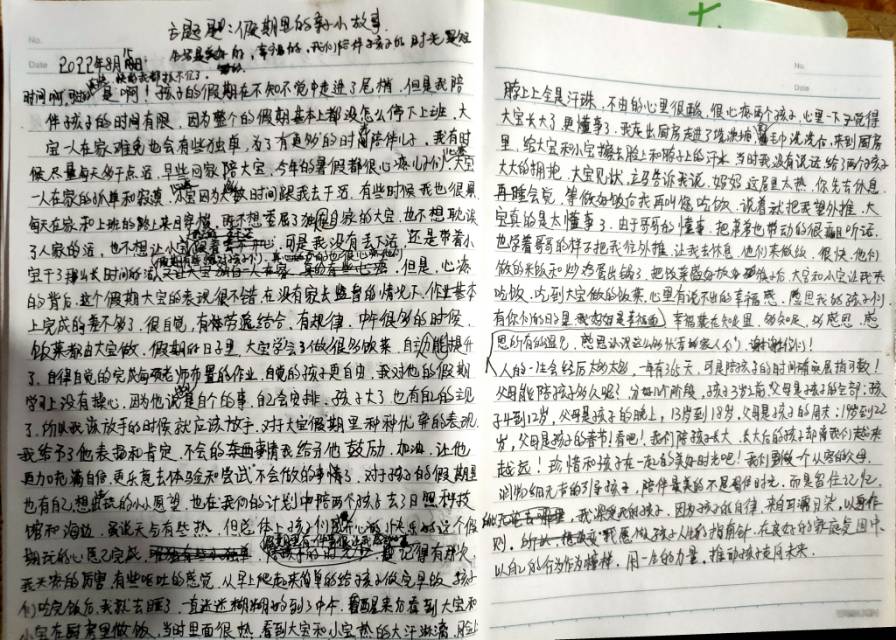 主题:假期里的亲子小故事
2022年8月15日
时间啊,是啊!孩子的假期在不知不觉中走进了尾梢,但是我陪
伴孩子的时间有限,因为整个的假期基本上都没怎么停下上班,大
宝一人在家难免也会有些独单,为了有更多的时间陪伴儿子,我有时
候尽量每天多干点活,早些回家陪大宝,今年的暑假都很心疼儿子们,大宝
一人在家的孤单和寂寞,小宝因为大数时间跟我去干活,有些时候我也很累
每天在家和上班的路上来回穿梭,既不想委屈了独自在家的大宝,也不想耽误
了人家的活,也不想让小宝可是我没有丢下活,还是带着小
宝干了那么长时间的活但是,心疼
的背后,这个假期大宝的表现很不错,在没有家长监督的情况下,作业基本
上完成的差不多了,很自觉,有体劳逸结合,有规律,中午很多的时候,
饭菜都由大宝做,假期的日子里,大宝学会了做很多饭菜,自提升
了,自律自觉的完成每项老师布置的作业,自觉的孩子更自由,我对他的假期
学习上没有操心,因为他说是自个的事,自己会安排,孩子大了也有自己的主观
了,所以我该放手的时候就应该放手,对于大宝假期里种种优秀的表现
我给予了他表扬和肯定,不会的东西事情我给予他鼓励,加油,让他
更加充满自信,更乐意去体验和尝试“不会做的事情了,对于孩子的假期里
也有自己想的小小愿望,也在我们的计划中陪两个孩子去了日照科技
馆和海边,虽说天气有些热,但总体上孩子们是开心的快乐的这个假
期玩的心愿已完成,记得有那次
我头疼的厉害,有些呕吐的感觉,从早上爬起来简单的给孩子做完早饭,孩子
们吃完饭后,我就去睡了,一直迷迷糊糊的到了中午,醒来后看到大宝和
小宝在厨房里做饭,当时里面很热,看到大宝和小宝热的大汗淋漓,脸上
脸上上全是汗珠,不由的心里很酸,很心疼两个孩子,心里一下子觉得
大宝长大了,更懂事了,我走出厨房走进了洗澡间,毛巾洗洗后,来到厨房
里,给大宝和小宝擦去脸上和脖子上的汗水,当时我没有说话,给了两个孩子
大大的拥抱,大宝见状,立马告诉我说,妈妈这屋里太热,你先去休息
再睡会觉,等做好饭后我再叫您吃饭,说着就把我望外推,大
宝真的是太懂事了,由于哥哥的懂事,把弟弟也带动的很听话,
也学着哥哥的样子把我往外推,让我去休息,他们来做饭,很快,他们
做的米饭和炒鸡蛋出锅了,把饭菜盛好放桌子后,大宝和小宝让我来
吃饭,吃到大宝做的饭菜,心里有说不出的幸福感,感恩我的孩子们
有你们的日子里,我真的好幸福,幸福藏在知足里,多知足,多感恩,感
恩所有的遇见,感恩认识这么多优秀的家人们,谢谢你们!
人的一生会经历大约大多,一年有365天,可是陪孩子的时间确屈指可数!
父母能陪孩子多久呢?分好几个阶段,孩子3岁之前,父母是孩子的全部;孩
子4到12岁,父母是孩子的晚上,13岁到18岁,父母是孩子的周末;19岁到22
岁,父母是孩子的春节!看吧!我们陪孩子长大,长大后的孩子却离我们越来
越远!珍惜和孩子在一起的美好时光吧!我们要做一个学习的父母,
润物细无声的引导孩子,陪伴最美的不是留住时光,而是留住记忆,
我深爱我的孩子,因为孩子的自律,来自耳濡目染,以身作
则,我愿做孩子人生的指南针,在良好的家庭氛围中
以自己的行为作为榜样,用一点的力量,推动孩子走向未来.